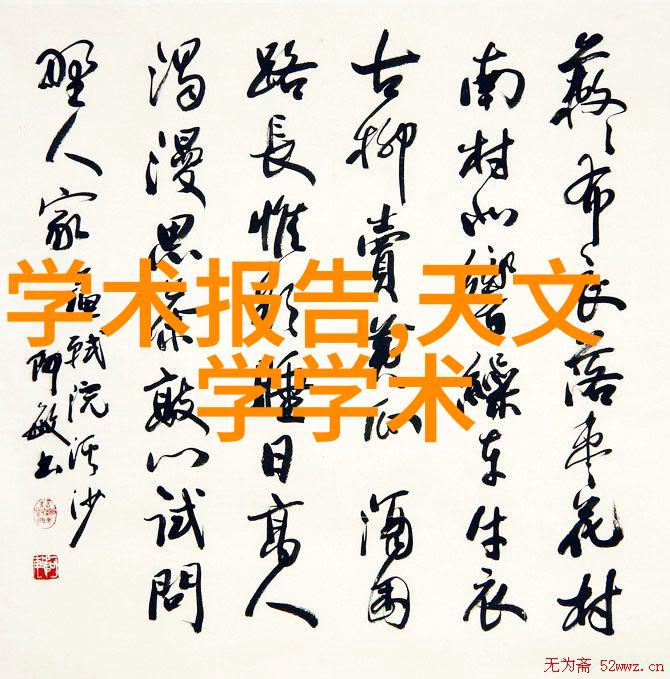 学术报告,天文
学学术
布衣落枣花村
南村北響繰車牛衣
古柳賣黄瓜 酒困
路長惟欲睡日高人
渴漫思茶敲门試問
野人家 蘇軾浣溪沙
无为斋 52wwz.cn